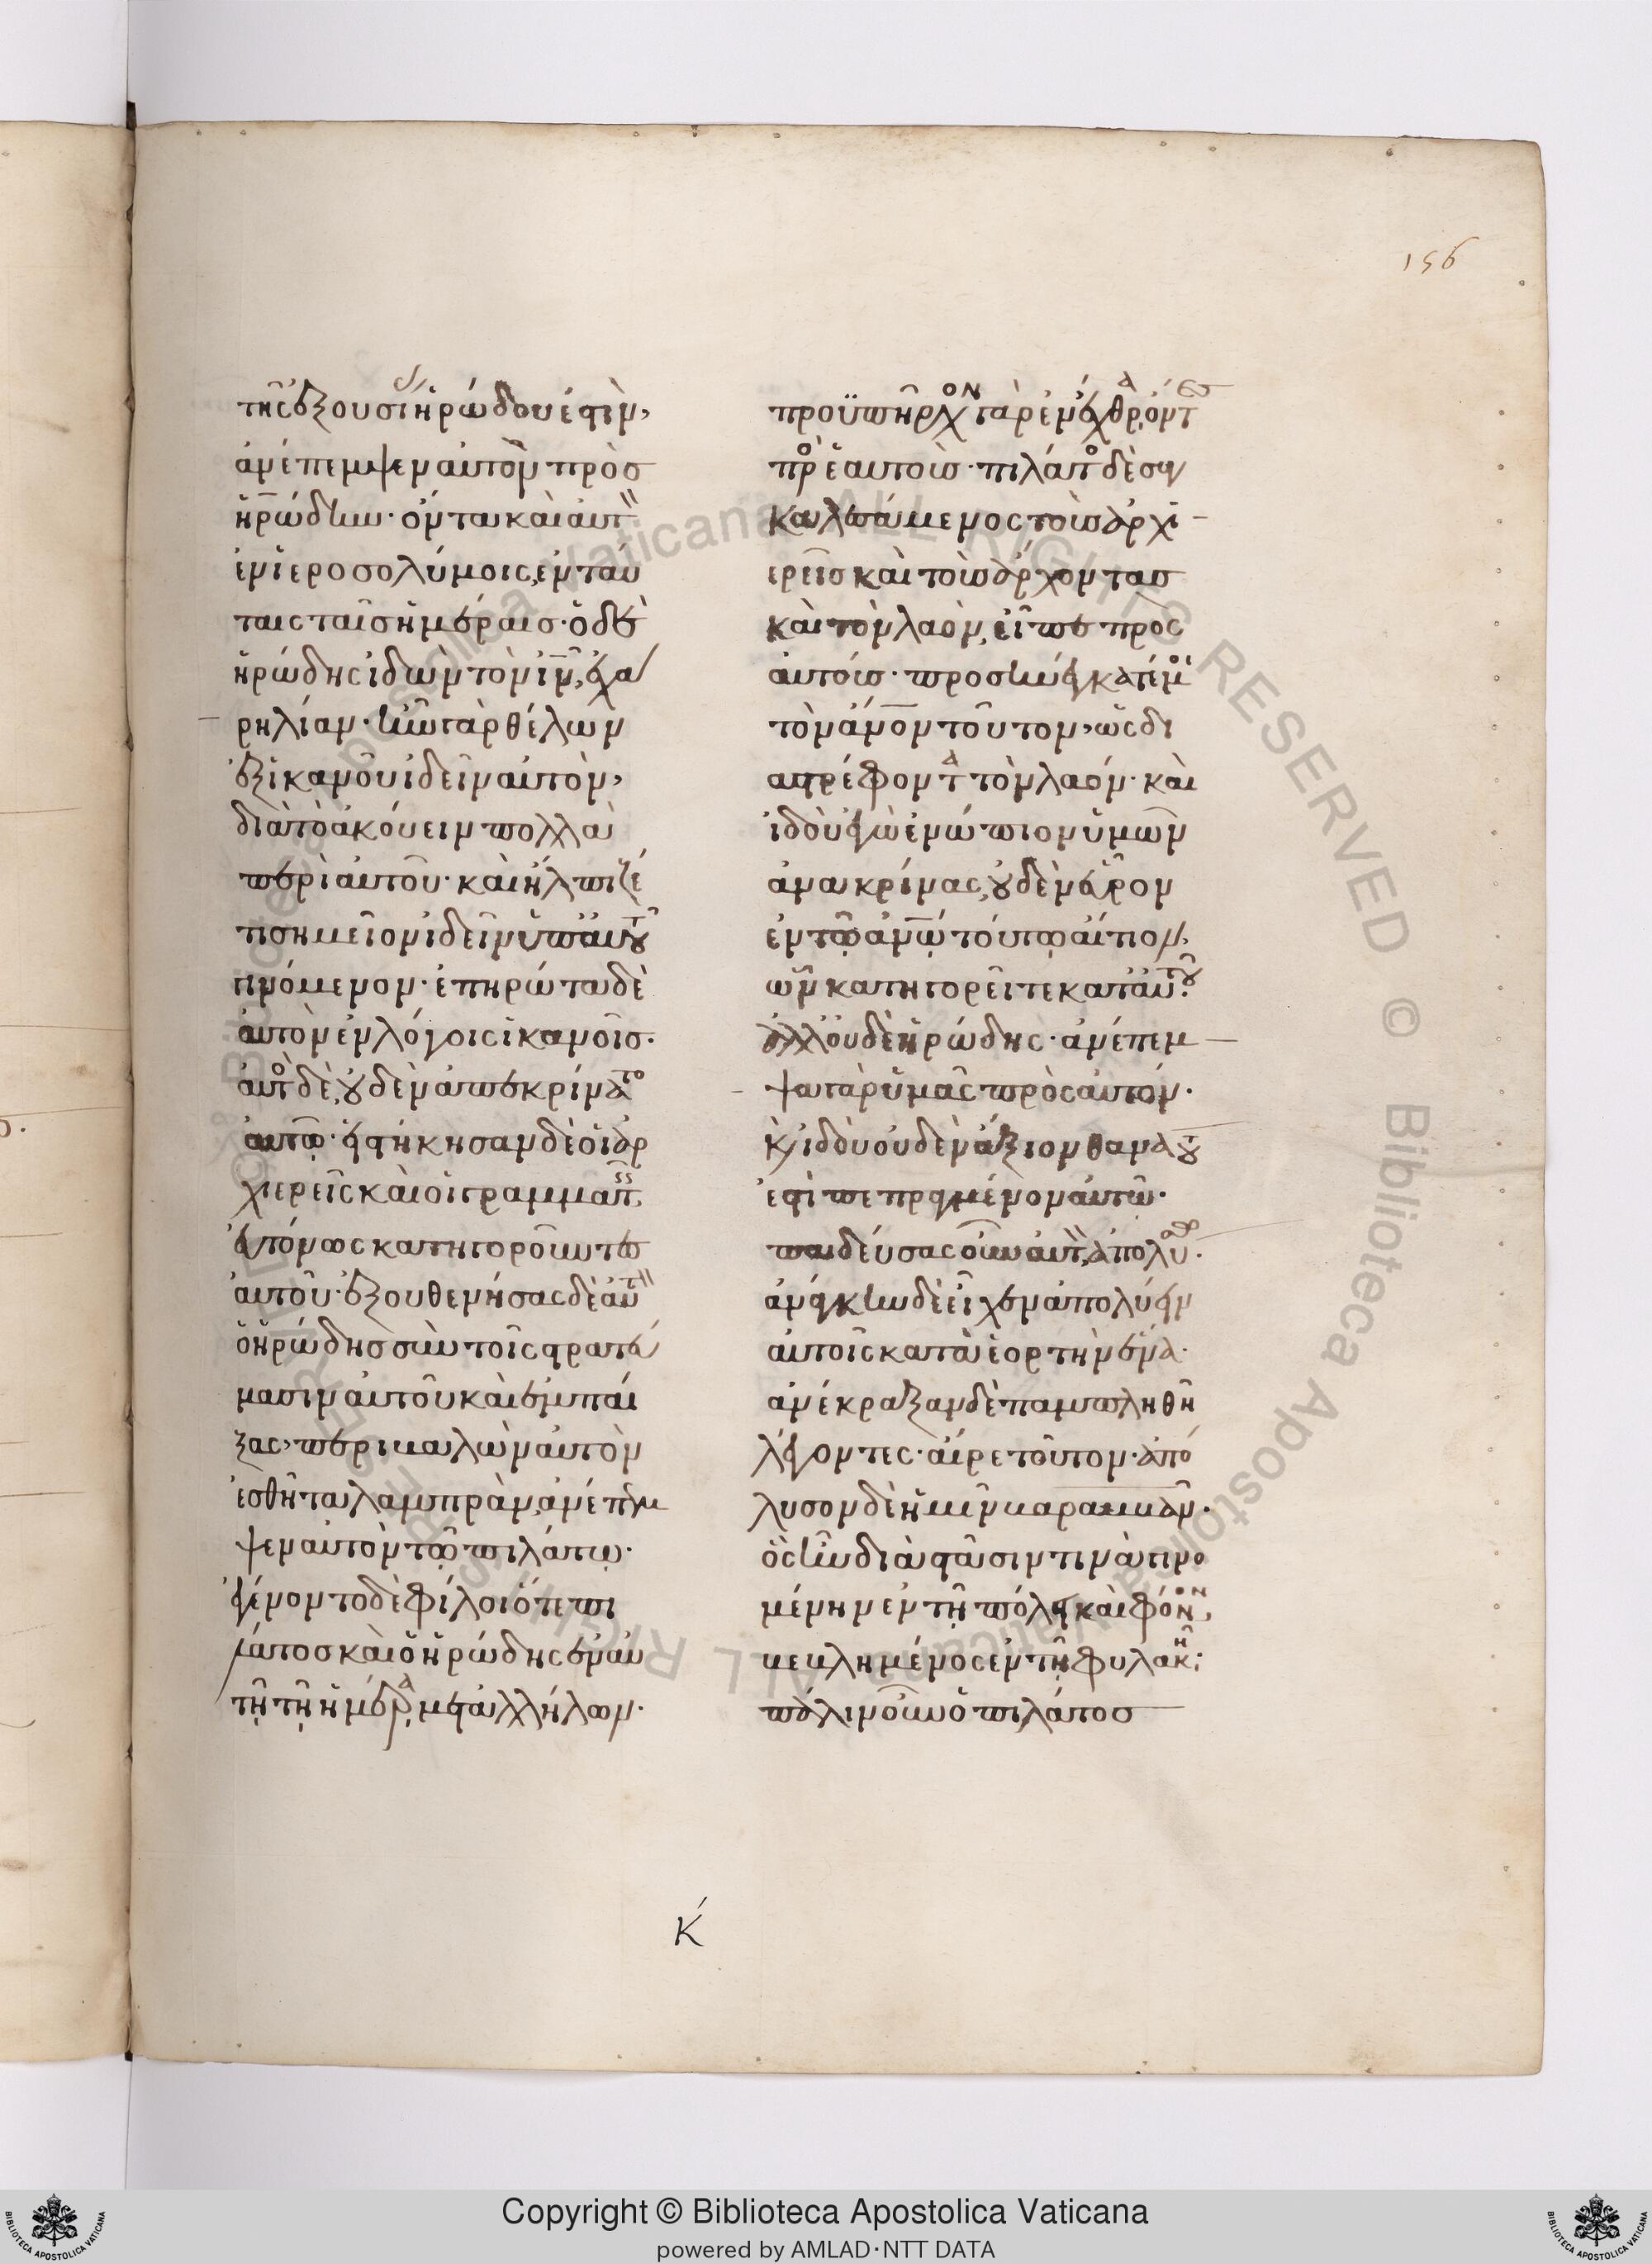 156
τῆς ἐξουσί ἡρώδου ἐστὶν,
ἀνέπεμψεν αὐτὸν πρὸσ
ἡρώδην· ὄντα καὶ αὐτ
ἐν ἱεροσολύμοις, ἐν ταύ
ταις ταῖσ ἡμέραισ· ὁ δὲ
ἡρώδης ἰδὼν τὸν ιν, ἐχά
ρη λίαν· ἦν γὰρ θέλων
ἐξ ἱκανοῦ ἰδεῖν αὐτὸν,
διὰ τὸ ἀκούειν πολλὰ
περὶ αὐτοῦ· καὶ ἤλπιζέ
τι σημεῖον ἰδεῖν ὑπ' αυτȣ
γινόμενον· ἐπηρώτα δὲ
αὐτὸν ἐν λόγοις ἱκανοῖσ·
αὐτο δὲ, ȣδὲν ἀπεκρίνατο
αὐτῷ· εἱστήκησαν δὲ οἱ ἀρ
χιερεῖς καὶ οἱ γραμματ
εὐτόνως κατηγοροῦντεσ
αὐτοῦ· ἐξουθενήσας δὲ αὐτ
ὁ ἡρώδησ σὺν τοῖς στρατεύ
μασιν αὐτοῦ καὶ ἐμπαί
ξας, περιβαλὼν αὐτὸν
ἐσθῆτα λαμπρὰν, ἀνέπεμ
ψεν αὐτὸν τῷ πιλάτῳ·
ἐγένοντο δὲ φίλοι ὅ τε πι
λάτοσ καὶ ὁ ἡρώδης ἐν αὐ
τῇ τῇ ἡμέρᾳ μετ' ἀλλήλων·
προϋπῆρχον γὰρ ἐν ἔχθρᾳ ὄντεσ
προ ἑαυτούσ· πιλάτο δὲ συγ
καλεσάμενος τοὺσ ἀρχι
ερεῖσ καὶ τοὺσ ἄρχοντασ
καὶ τὸν λαὸν, εἶπε πρὸς
αὐτούσ· προσηνέγκατέ μοι
τὸν ανον τοῦτον, ὡς δι
αστρέφοντα τὸν λαόν· καὶ
ἰδοὺ ἐγὼ ἐνώπιον ὑμῶν
ἀνακρίνας, ȣδὲν εὗρον
ἐν τῷ ανω τούτῳ αἴτιον,
ὧν κατηγορεῖτε κατ' αὐτȣ·
ἀλλ' οὐδὲ ἡρώδης· ἀνέπεμ
ψα γὰρ ὑμᾶς πρὸς αὐτόν·
κ ἰδοὺ οὐδὲν ἄξιον θανάτȣ
ἐστὶ πεπραγμένον αὐτῷ·
παιδεύσας οὖν αὐτ, ἀπολύσω·
ἀνάγκην δὲ εἶχεν ἀπολύειν
αὐτοῖς κατὰ ἑορτὴν ἕνα·
ἀνέκραξαν δὲ παμπληθεὶ
λέγοντες· αἶρε τοῦτον· ἀπό
λυσον δὲ ἡμῖν βαραββᾶν·
ὃς ἦν διὰ στάσιν τινὰ γινο
μένην ἐν τῇ πόλει καὶ φόνον,
βεβλημένος ἐν τῇ φυλακῆ·
πάλιν οὖν ὁ πιλάτοσ
Κ
Copyright © Biblioteca Apostolica Vaticana
powered by AMLAD·NTT DATA